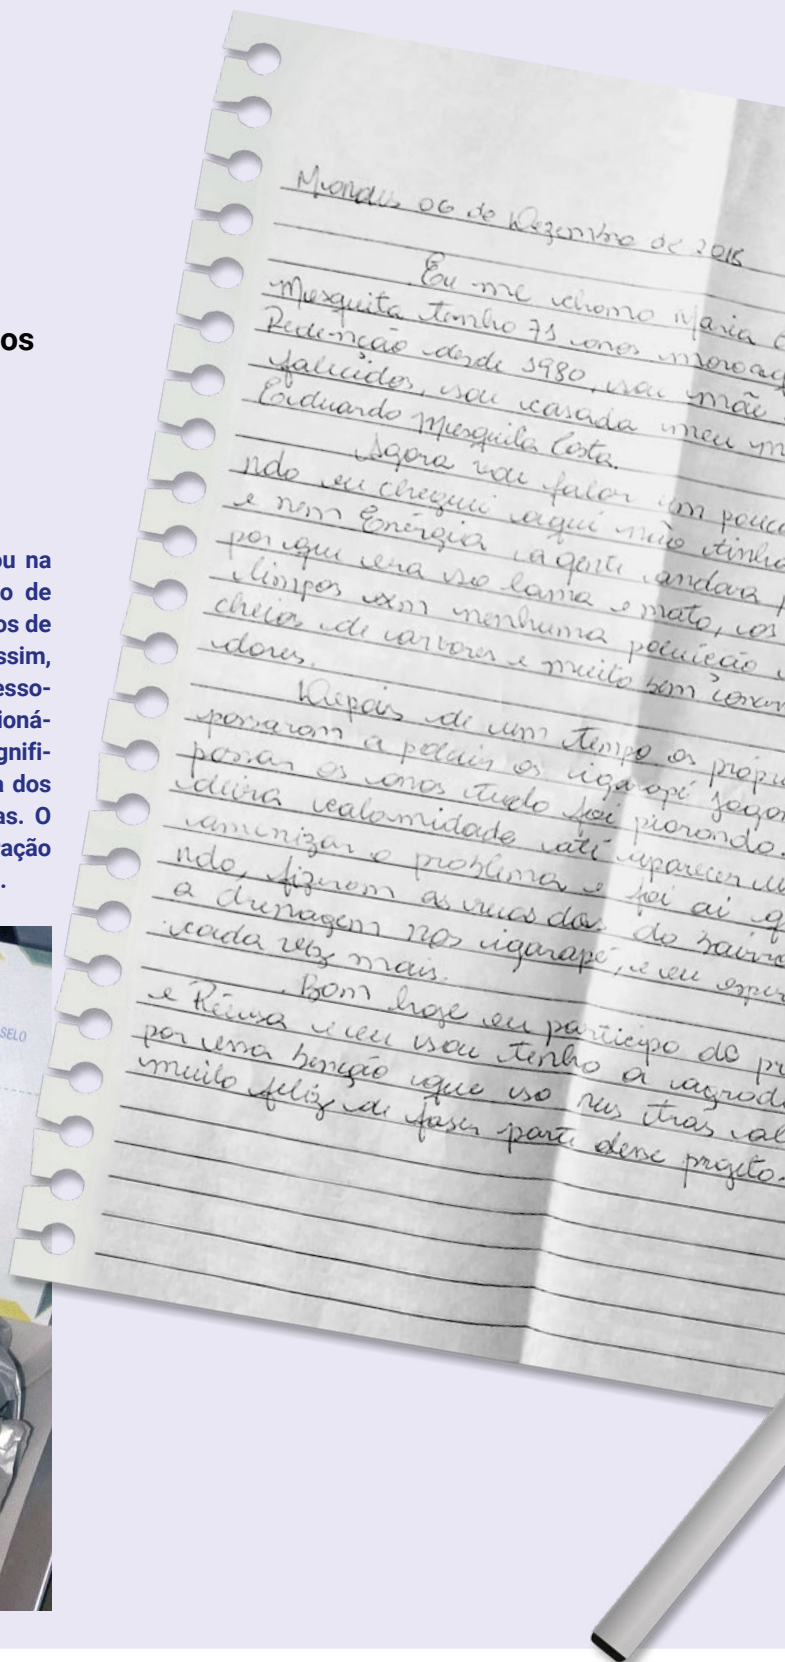 os
ou na
o de
os de
ssim,
esso-
ioná-
gnifi-
a dos
as. O
ração
.
SELO
Manaus 06 de Dezembro de 2018
Eu me chamo Maria
Mesquita tenho 71 anos moro aq
Redenção desde 1980, sou mãe
falicidos, sou casada meu m
Eduardo Mesquita Costa.
Agora vou falar um pouco
ndo eu chequei aqui não tinha
e nem Energia a gente andava p
por que era so lama e mato, os
limpos sem nenhuma poluição
cheios de arvores e muito bem conser
dores.
Depois de um tempo os própri
passaram a poluir os igarapé jogan
passar os anos tudo foi piorando.
deira calamidade até aparecer um
amenizar o problema e foi ai q
ndo, fizeram as ruas das do bairro
a drenagem nos igarapé, e eu esper
cada vez mais.
Bom hoje eu participo do pr
e Réusa e eu sou tenho a agrade
por essa benção que so nus tras al
muito feliz de faser parte desse projeto.